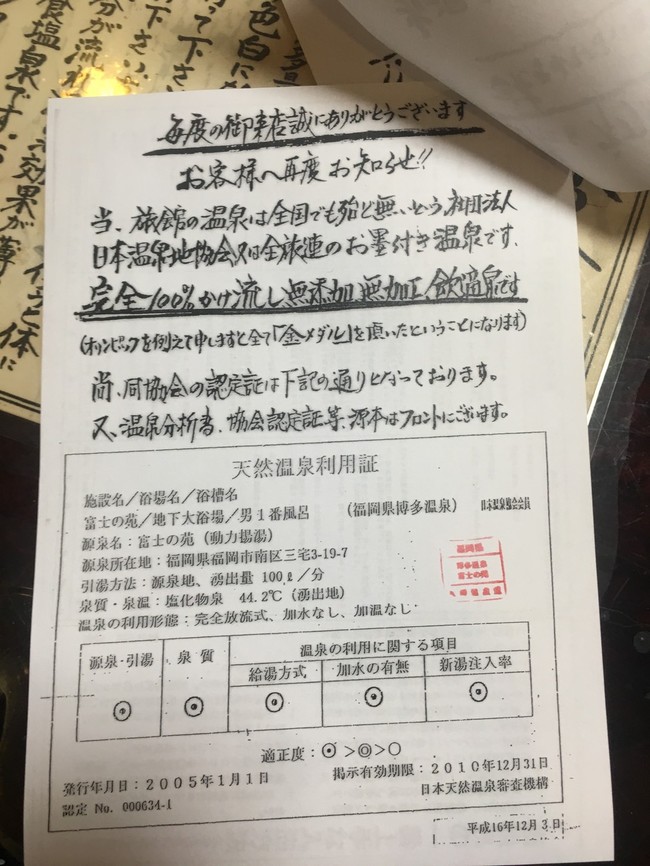 毎度の御来店誠にありがとうございます
お客様へ再度お知らせ!!
当、旅館の温泉は全国でも殆ど無いという、社団法人
日本温泉地協会、又は全旅連のお墨付き温泉です、
完全100%かけ流し無添加、無加工、飲適泉です
(オリンピックを例えて申しますと全て「金メダル」を頂いたということになります)
尚、同協会の認定証は下記の通りとなっております。
又、温泉分析書、協会認定証等、源本はフロントにございます。
天然温泉利用証
施設名/浴場名/浴槽名
富士の苑/地下大浴場/男1番風呂 (福岡県博多温泉)
源泉名:富士の苑(動力揚湯)
源泉所在地:福岡県福岡市南区三宅3-19-7
引湯方法:源泉地、湧出量 100ℓ/分
泉質・泉温:塩化物泉 44.2℃(湧出地)
温泉の利用形態:完全放流式、加水なし、加温なし
福岡県
博多温泉
富士の苑
源泉・引湯 泉質 温泉の利用に関する項目
給湯方式 加水の有無 新湯注入率
☉ ☉ ☉ ☉ ☉
適正度:☉>◎>○
発行年月日:2005年1月1日 掲示有効期限:2010年12月31日
認定 No. 000634-1 日本天然温泉審査機構
平成16年12月3日